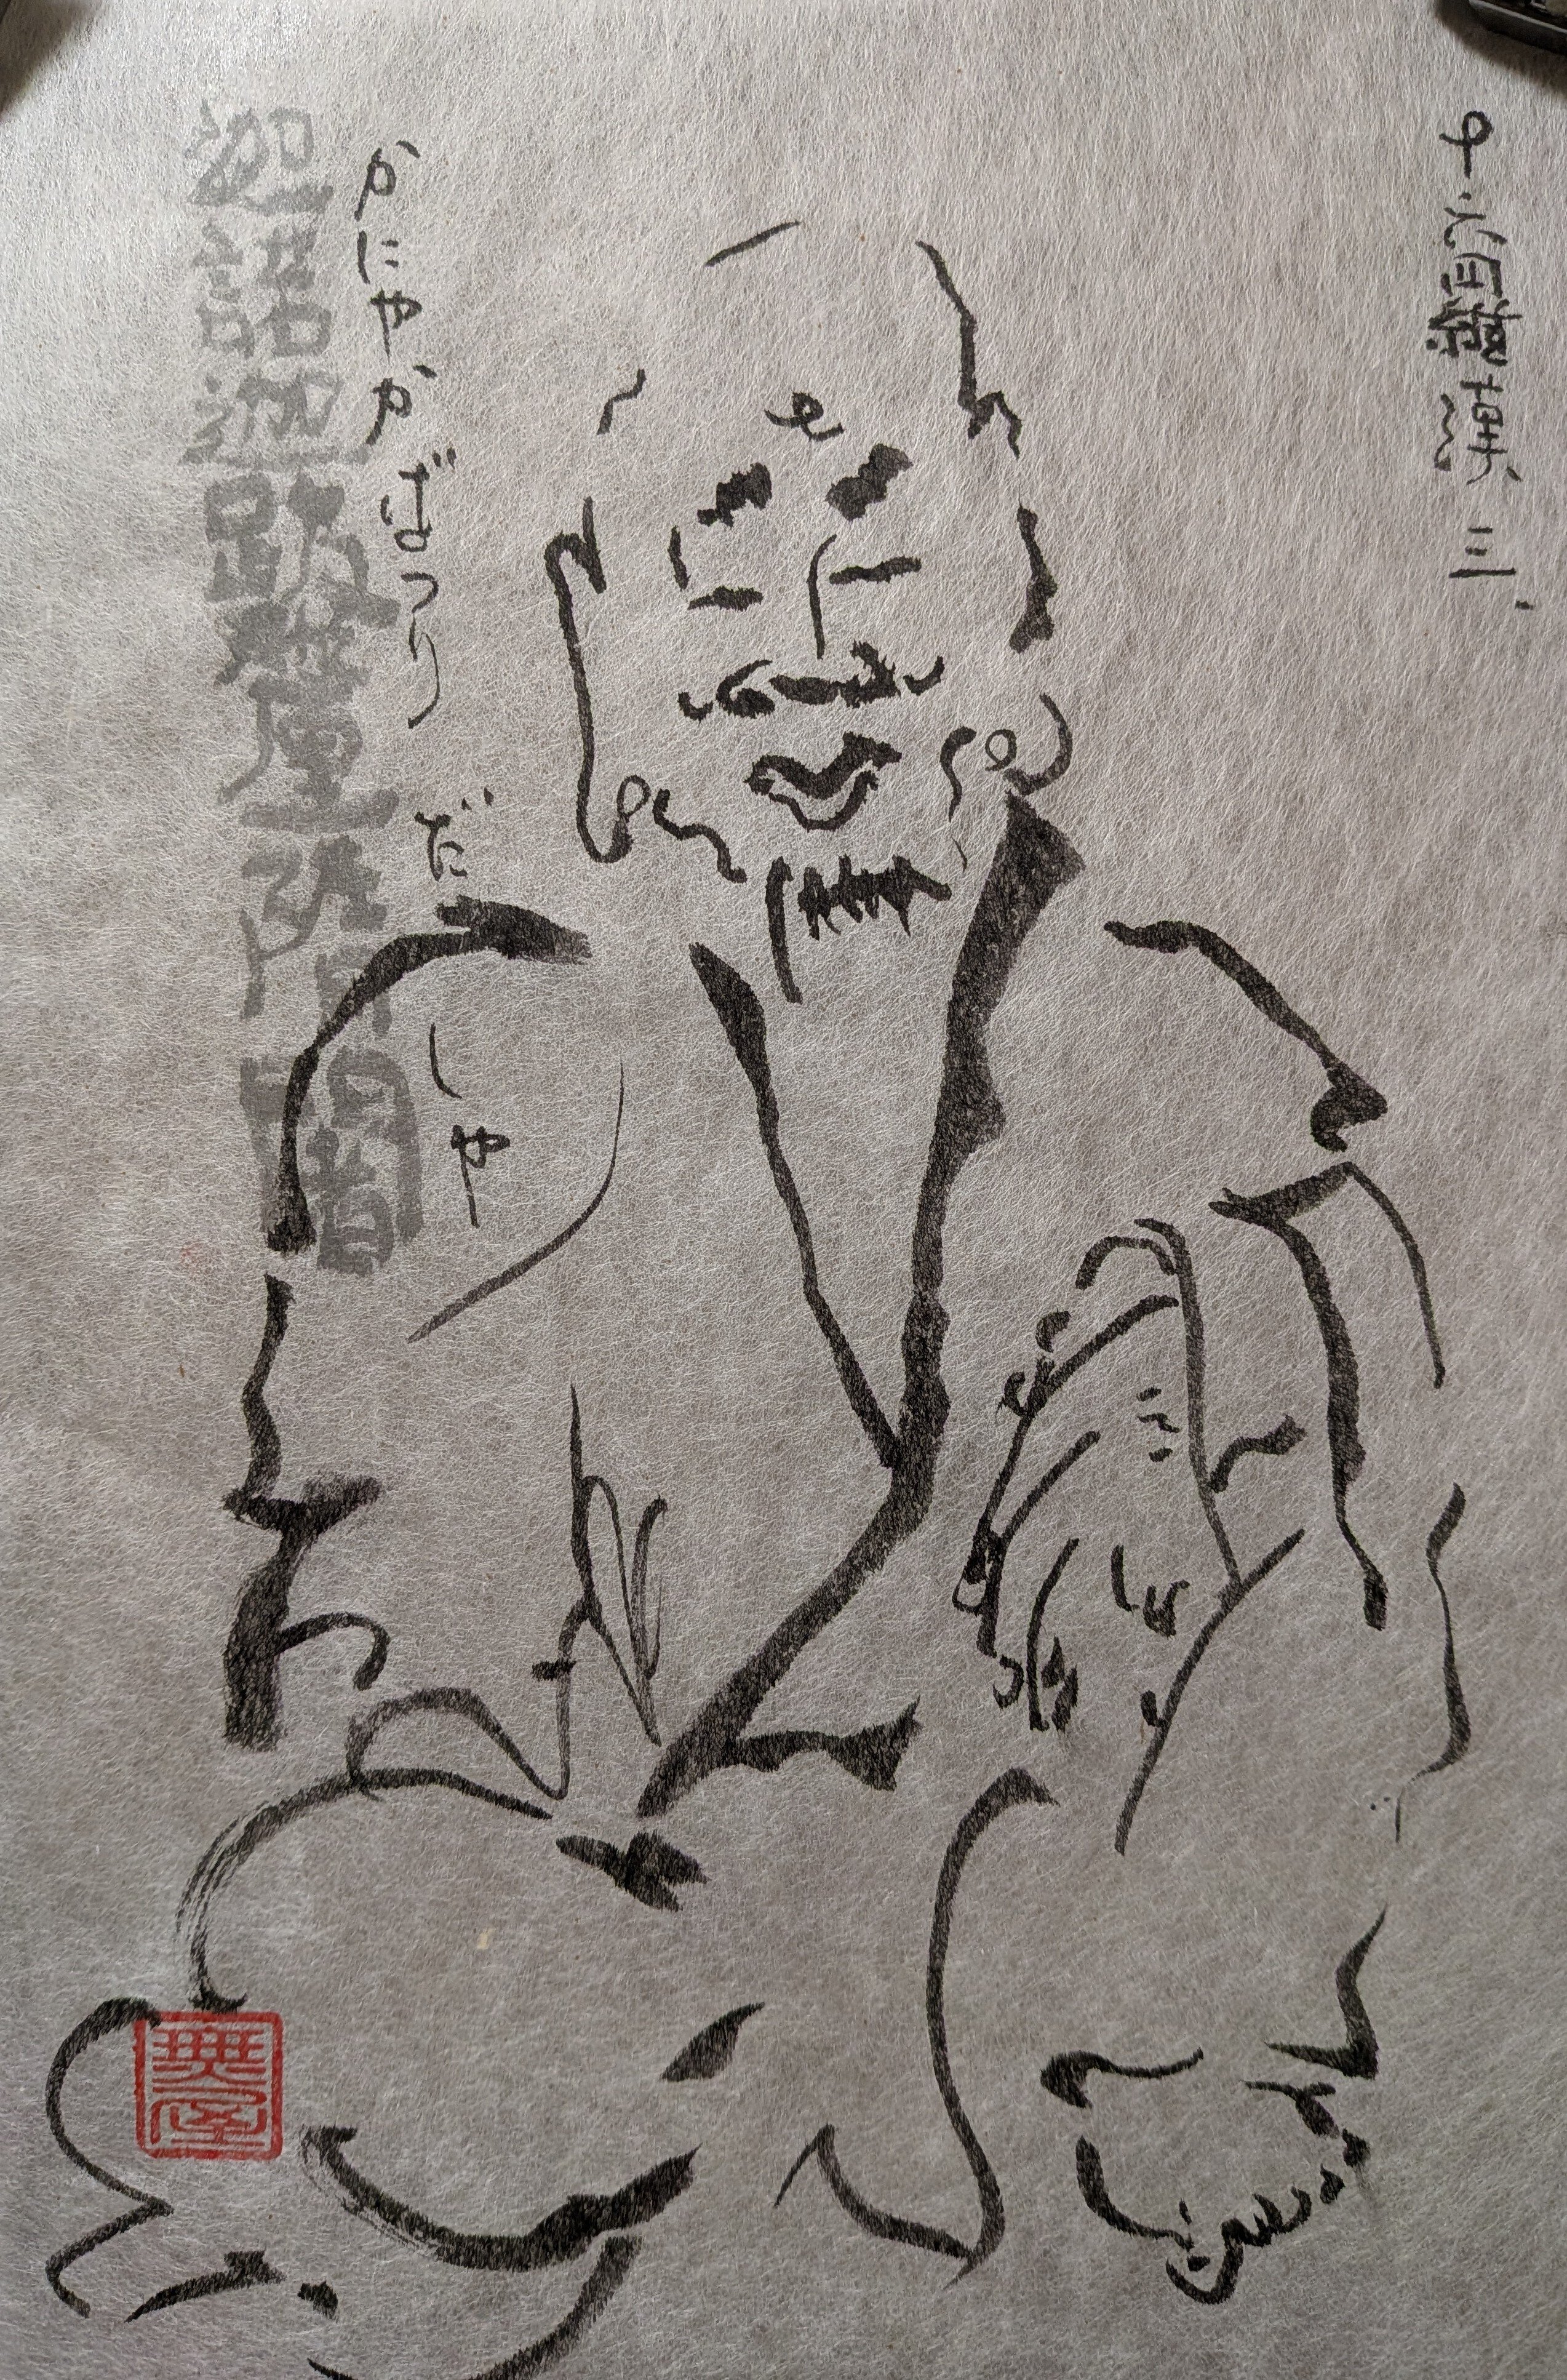 十六羅漢 三
かにやかばつりだしや
迦諾迦跋釐堕闍